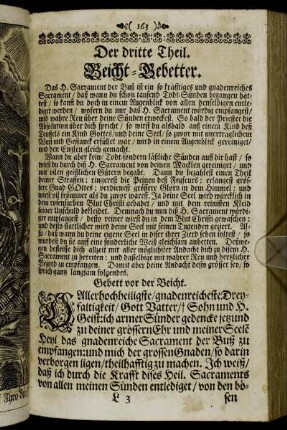 163
Der dritte Theil.
Beicht-Gebetter.
Das H. Sacrament der Buß ist ein so kräfftiges und gnadenreiches
Sacrament / daß wann du schon tausend Todt-Sünden begangen hät-
test / so kanst du doch in einem Augenblick von allen denselbigen entle-
diget werden / wofern du nur das H. Sacrament würdig empfangest /
und wahre Reu über deine Sünden erweckest. So bald der Priester die
Absolution über dich spricht / so wirst du alsbald auß einem Kind deß
Teuffels ein Kind Gottes / und deine Seel / so zuvor mit unerträglichem
Wust und Gestanck erfüllet war / wird in einem Augenblick gereiniget /
und den Englen gleich gemacht.
Wann du aber keine Todt- sondern läßliche Sünden auff dir hast / so
wirst du durch das H. Sacrament von deinen Mackeln gereiniget / und
mit vilen geistlichen Gütern begabt. Dann du bezahlest einen Theil
deiner Straffen: ringerst die Peinen deß Fegfeurs: erlangest grösse-
re Gnad GOttes: verdienest grössere Glory in dem Himmel: und
wirst vil frömmer als du zuvor warest. Ja deine Seel wird würcklich in
dem rosenfarben Blut Christi gebadet / und mit dem reinisten Kleid
seiner Unschuld bekleidet. Demnach du nun diß H. Sacrament würdi-
ger empfangest / desto reiner wirst du in dem Blut Christi gewaschen :
und desto stattlicher wird deine Seel mit seinen Tugenden gezieret. Al-
so / daß wann du deine eigene Seel in diser schönen Zierd sehen soltest / so
wurdest du sie auß eine sonderliche Lieb gleichsam anbetten. Deßwe-
gen befleisse dich allzeit mit aller möglichster Andacht dich zu disem H.
Sacrament zu bereiten : und dasselbige mit wahrer Reu und hertzlicher
Begird zu empfangen. Damit aber deine Andacht desto grösser sey / so
sprich gantz langsam folgendes.
Gebett vor der Beicht.
O Allerhochheiligste / gnadenreicheste Drey-
faltigkeit / Gott Vatter / † Sohn und H.
Geist / ich armer Sünder gedencke jetzund
zu deiner grössern Ehr und meiner Seele
Heyl das gnadenreiche Sacrament der Buß zu
empfangen: und mich der grossen Gnaden / so darin
verborgen ligen / theilhafftig zu machen. Ich weiß /
daß ich durch die Krafft dises Heil. Sacraments
von allen meinen Sünden entlediget / von den bö-
L 3 sen